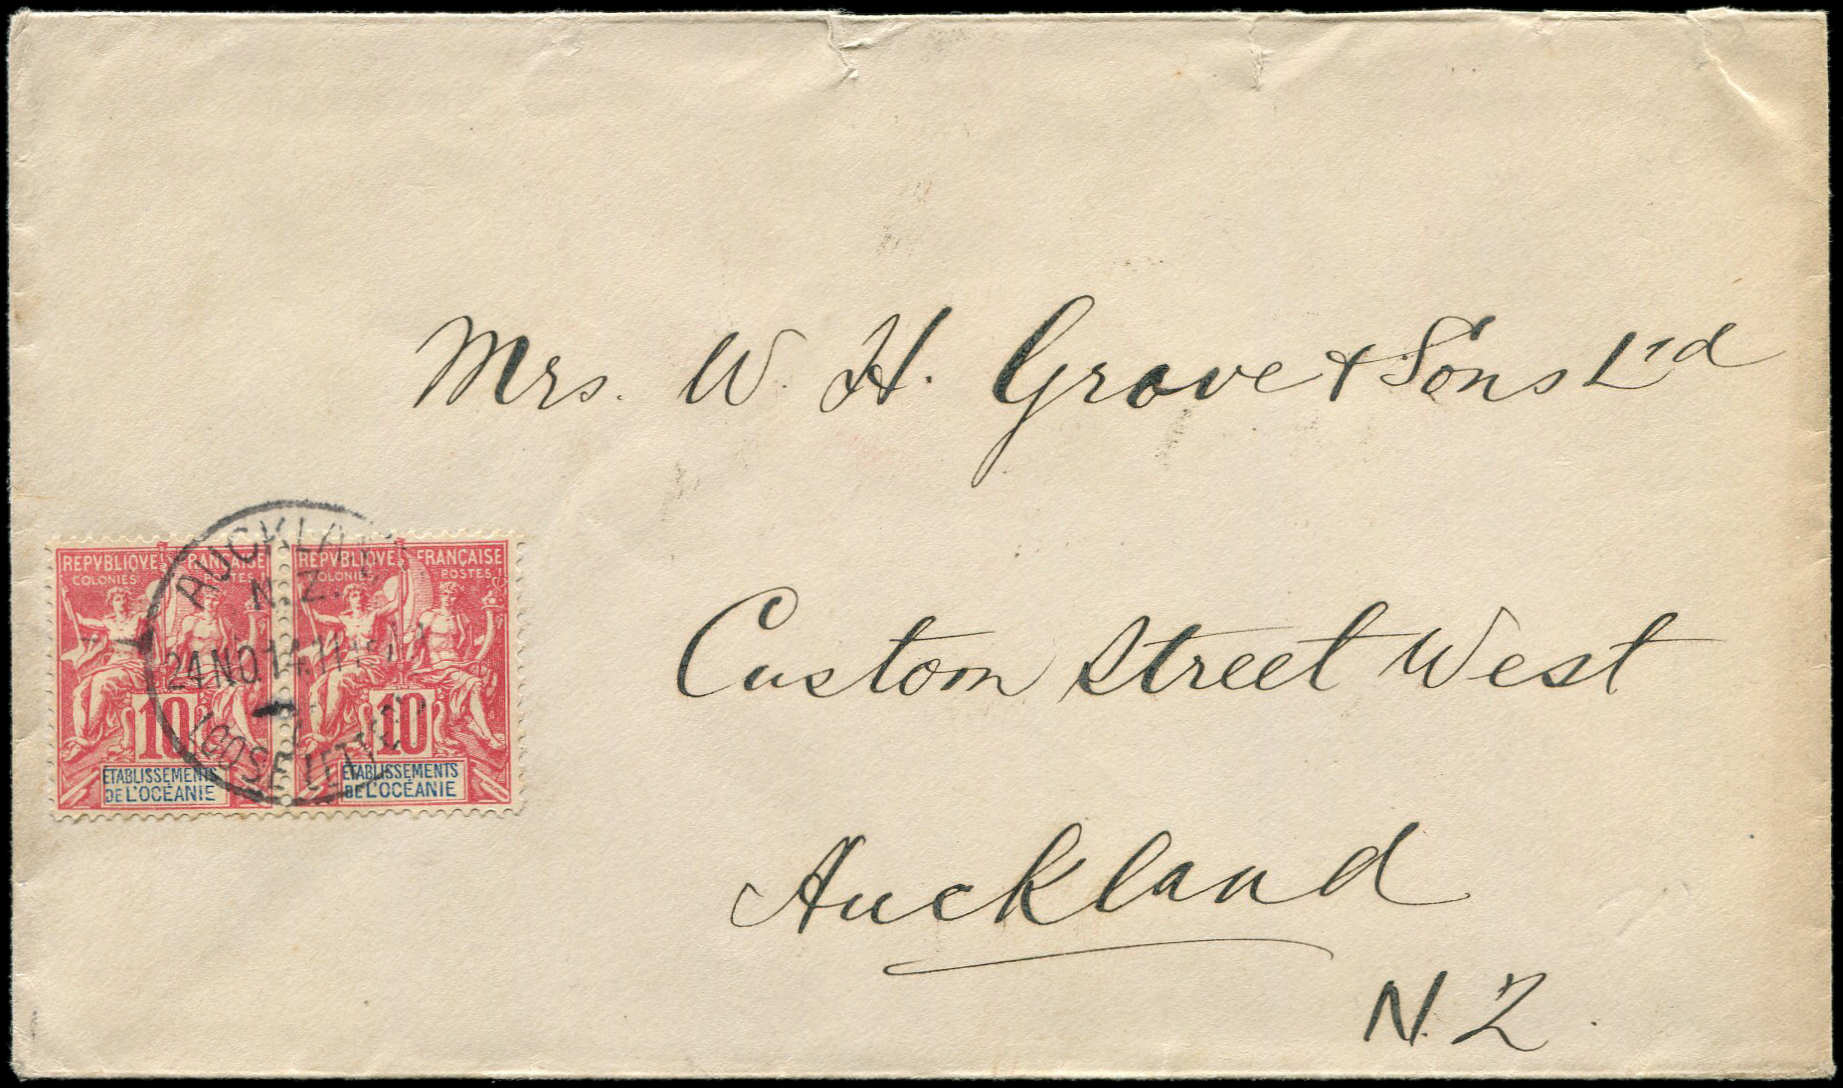 Mrs. W. H. Grove & Sons Ltd
Custom Street West
Auckland
N.Z.
REPVBLIQVE FRANÇAISE
COLONIES POSTES
10
ETABLISSEMENTS
DE L'OCÉANIE
REPVBLIQVE FRANÇAISE
COLONIES POSTES
10
ETABLISSEMENTS
DE L'OCÉANIE
AUCKLAND
N.Z.
24 NO 14.11
LOOSE LETTER